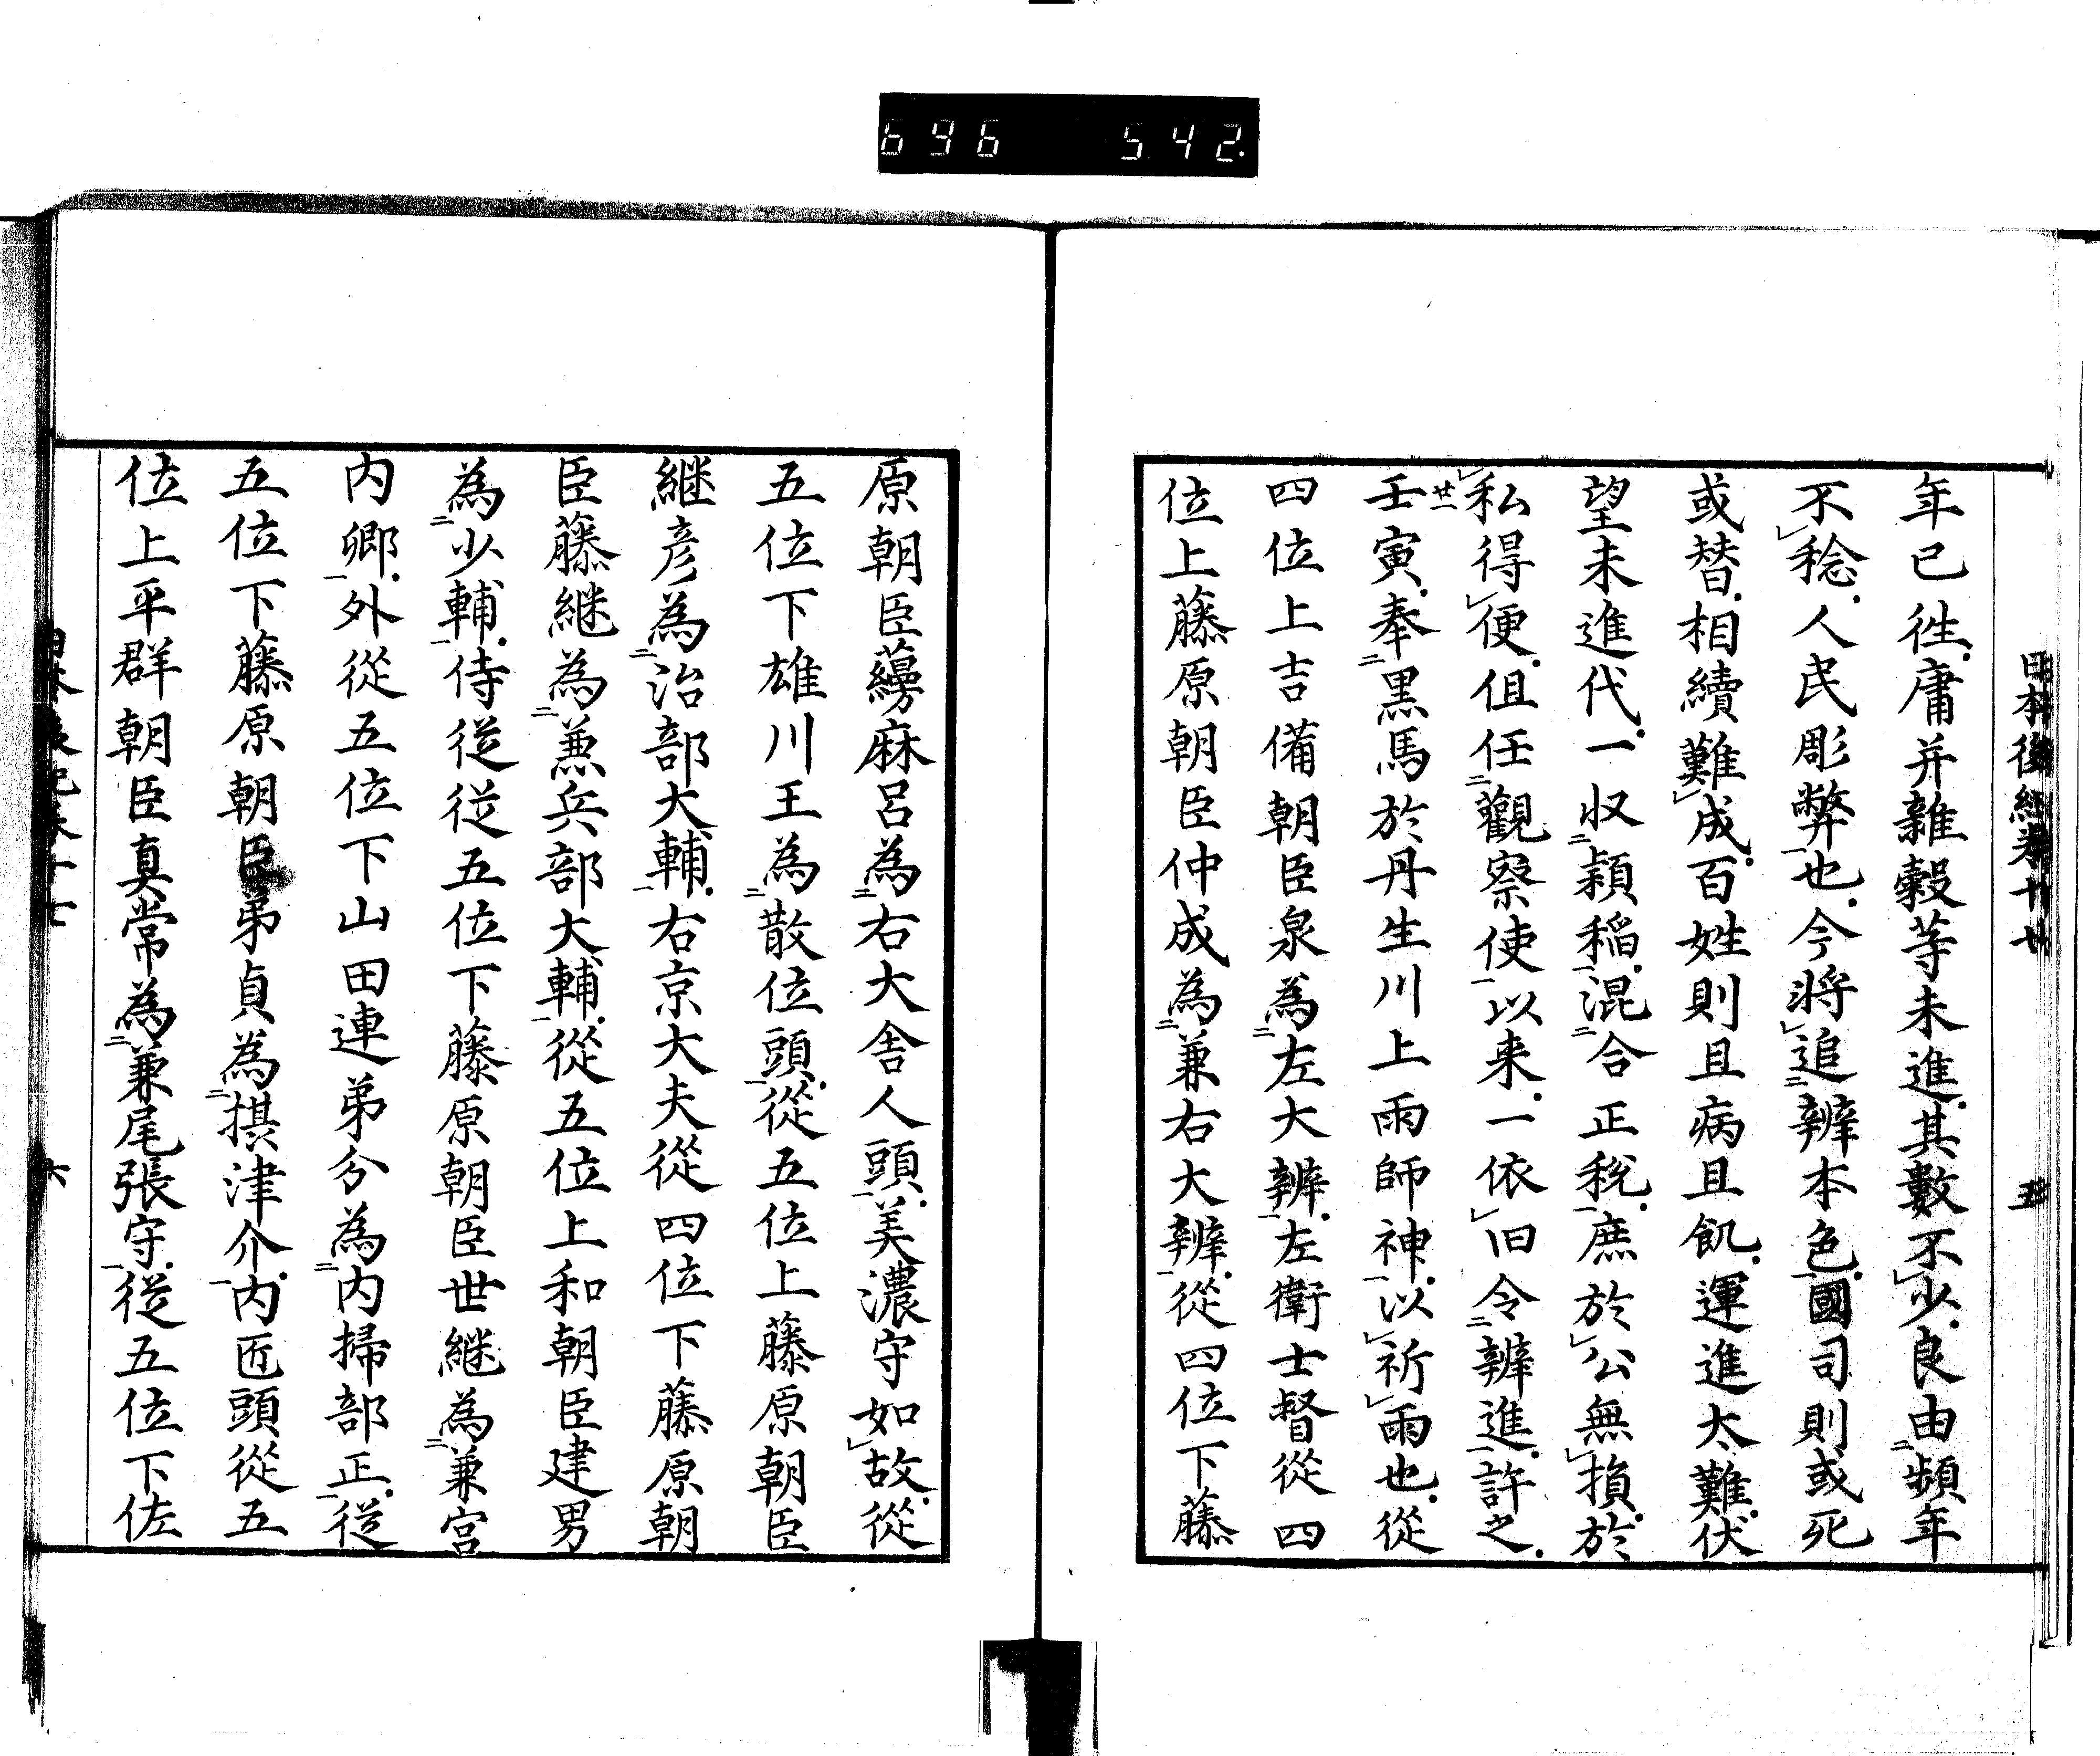 696 542
日本後紀卷十七 五
年已徃庸并雜穀等未進其數不少良由頻年
不稔人民彫弊也今將追辨本色國司則或死
或替相續難成百姓則且病且飢運進太難伏
望未進代一收穎稲混合正税庶於公無損於
私得便但任觀察使以来一依旧令辨進許之
廿一
壬寅奉黒馬於丹生川上雨師神以祈雨也從
四位上吉備朝臣泉為左大辨左衛士督從四
位上藤原朝臣仲成為兼右大辨從四位下藤
原朝臣蘰麻呂為右大舎人頭美濃守如故從
五位下雄川王為散位頭從五位上藤原朝臣
継彦為治部大輔右京大夫從四位下藤原朝
臣藤継為兼兵部大輔從五位上和朝臣建男
為少輔侍従従五位下藤原朝臣世継為兼宮
内卿外從五位下山田連弟分為内掃部正従
五位下藤原朝臣弟貞為摂津介内匠頭從五
位上平群朝臣真常為兼尾張守従五位下佐
六